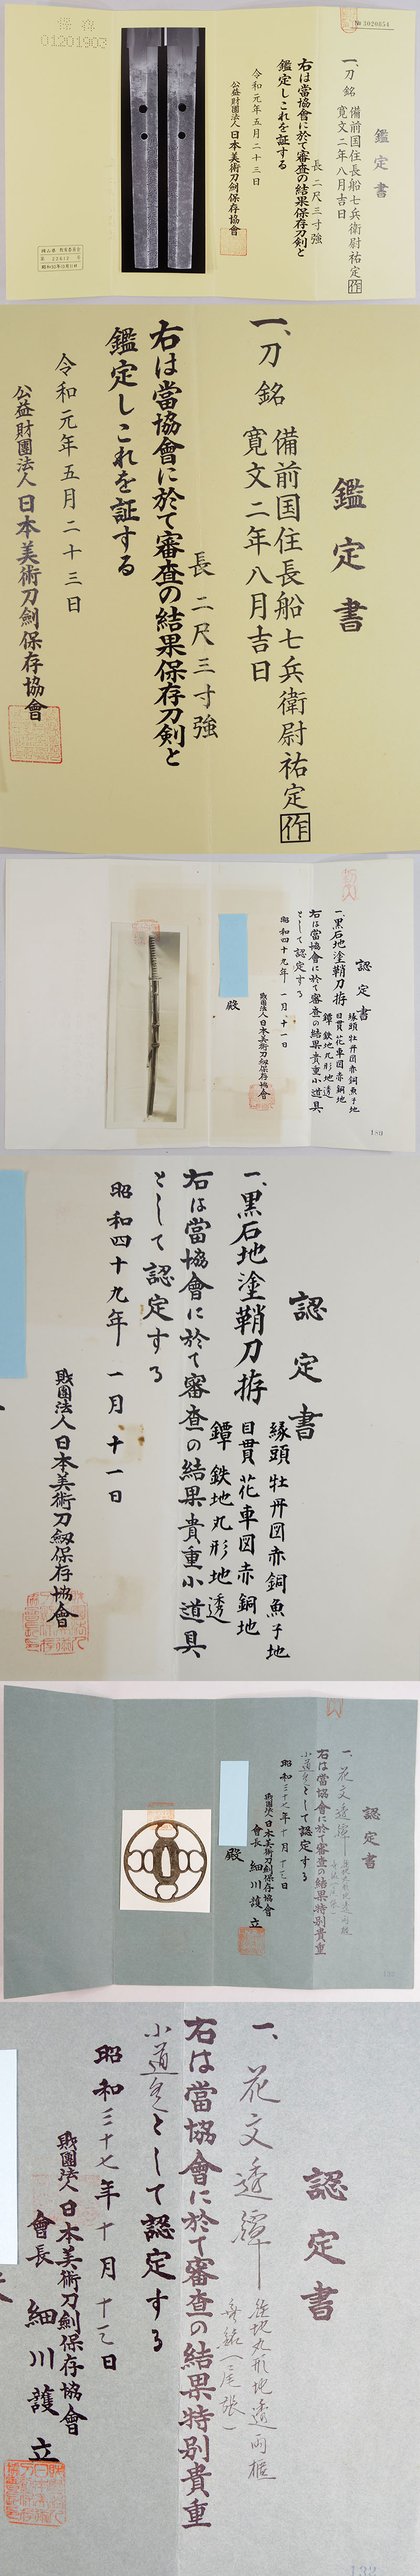 保存
01201903
№ 3020854
鑑定書
一、刀 銘 備前国住長船七兵衛尉祐定作
寛文二年八月吉日
長 二尺三寸強
右は當協會に於て審査の結果保存刀剣と
鑑定しこれを証する
令和元年五月二十三日
公益財團法人 日本美術刀劍保存協會
鑑定書
一、刀 銘 備前国住長船七兵衛尉祐定作
寛文二年八月吉日
長 二尺三寸強
右は當協會に於て審査の結果保存刀剣と
鑑定しこれを証する
令和元年五月二十三日
公益財團法人 日本美術刀劍保存協會
認定書
一、黒石地塗鞘刀拵 縁頭 牡丹図赤銅魚子地
目貫 花車図赤銅地
鐔 鉄地丸形地透
右は當協會に於て審査の結果貴重小道具
として認定する
昭和四十九年 一月 十一日
財團法人 日本美術刀劔保存協會
殿
180
認定書
一、黒石地塗鞘刀拵 縁頭 牡丹図赤銅魚子地
目貫 花車図赤銅地
鐔 鉄地丸形地透
右は當協會に於て審査の結果貴重小道具
として認定する
昭和四十九年 一月 十一日
財團法人 日本美術刀劔保存協會
認定書
一、花文透鐔 鉄地丸形地透両櫃
無銘(尾張)
右は當協會に於て審査の結果特別貴重
小道具として認定する
昭和三十七年十月十三日
財團法人 日本美術刀劍保存協會
會長 細川護立
殿
認定書
一、花文透鐔 鉄地丸形地透両櫃
無銘(尾張)
右は當協會に於て審査の結果特別貴重
小道具として認定する
昭和三十七年十月十三日
財團法人 日本美術刀劍保存協會
會長 細川護立
132